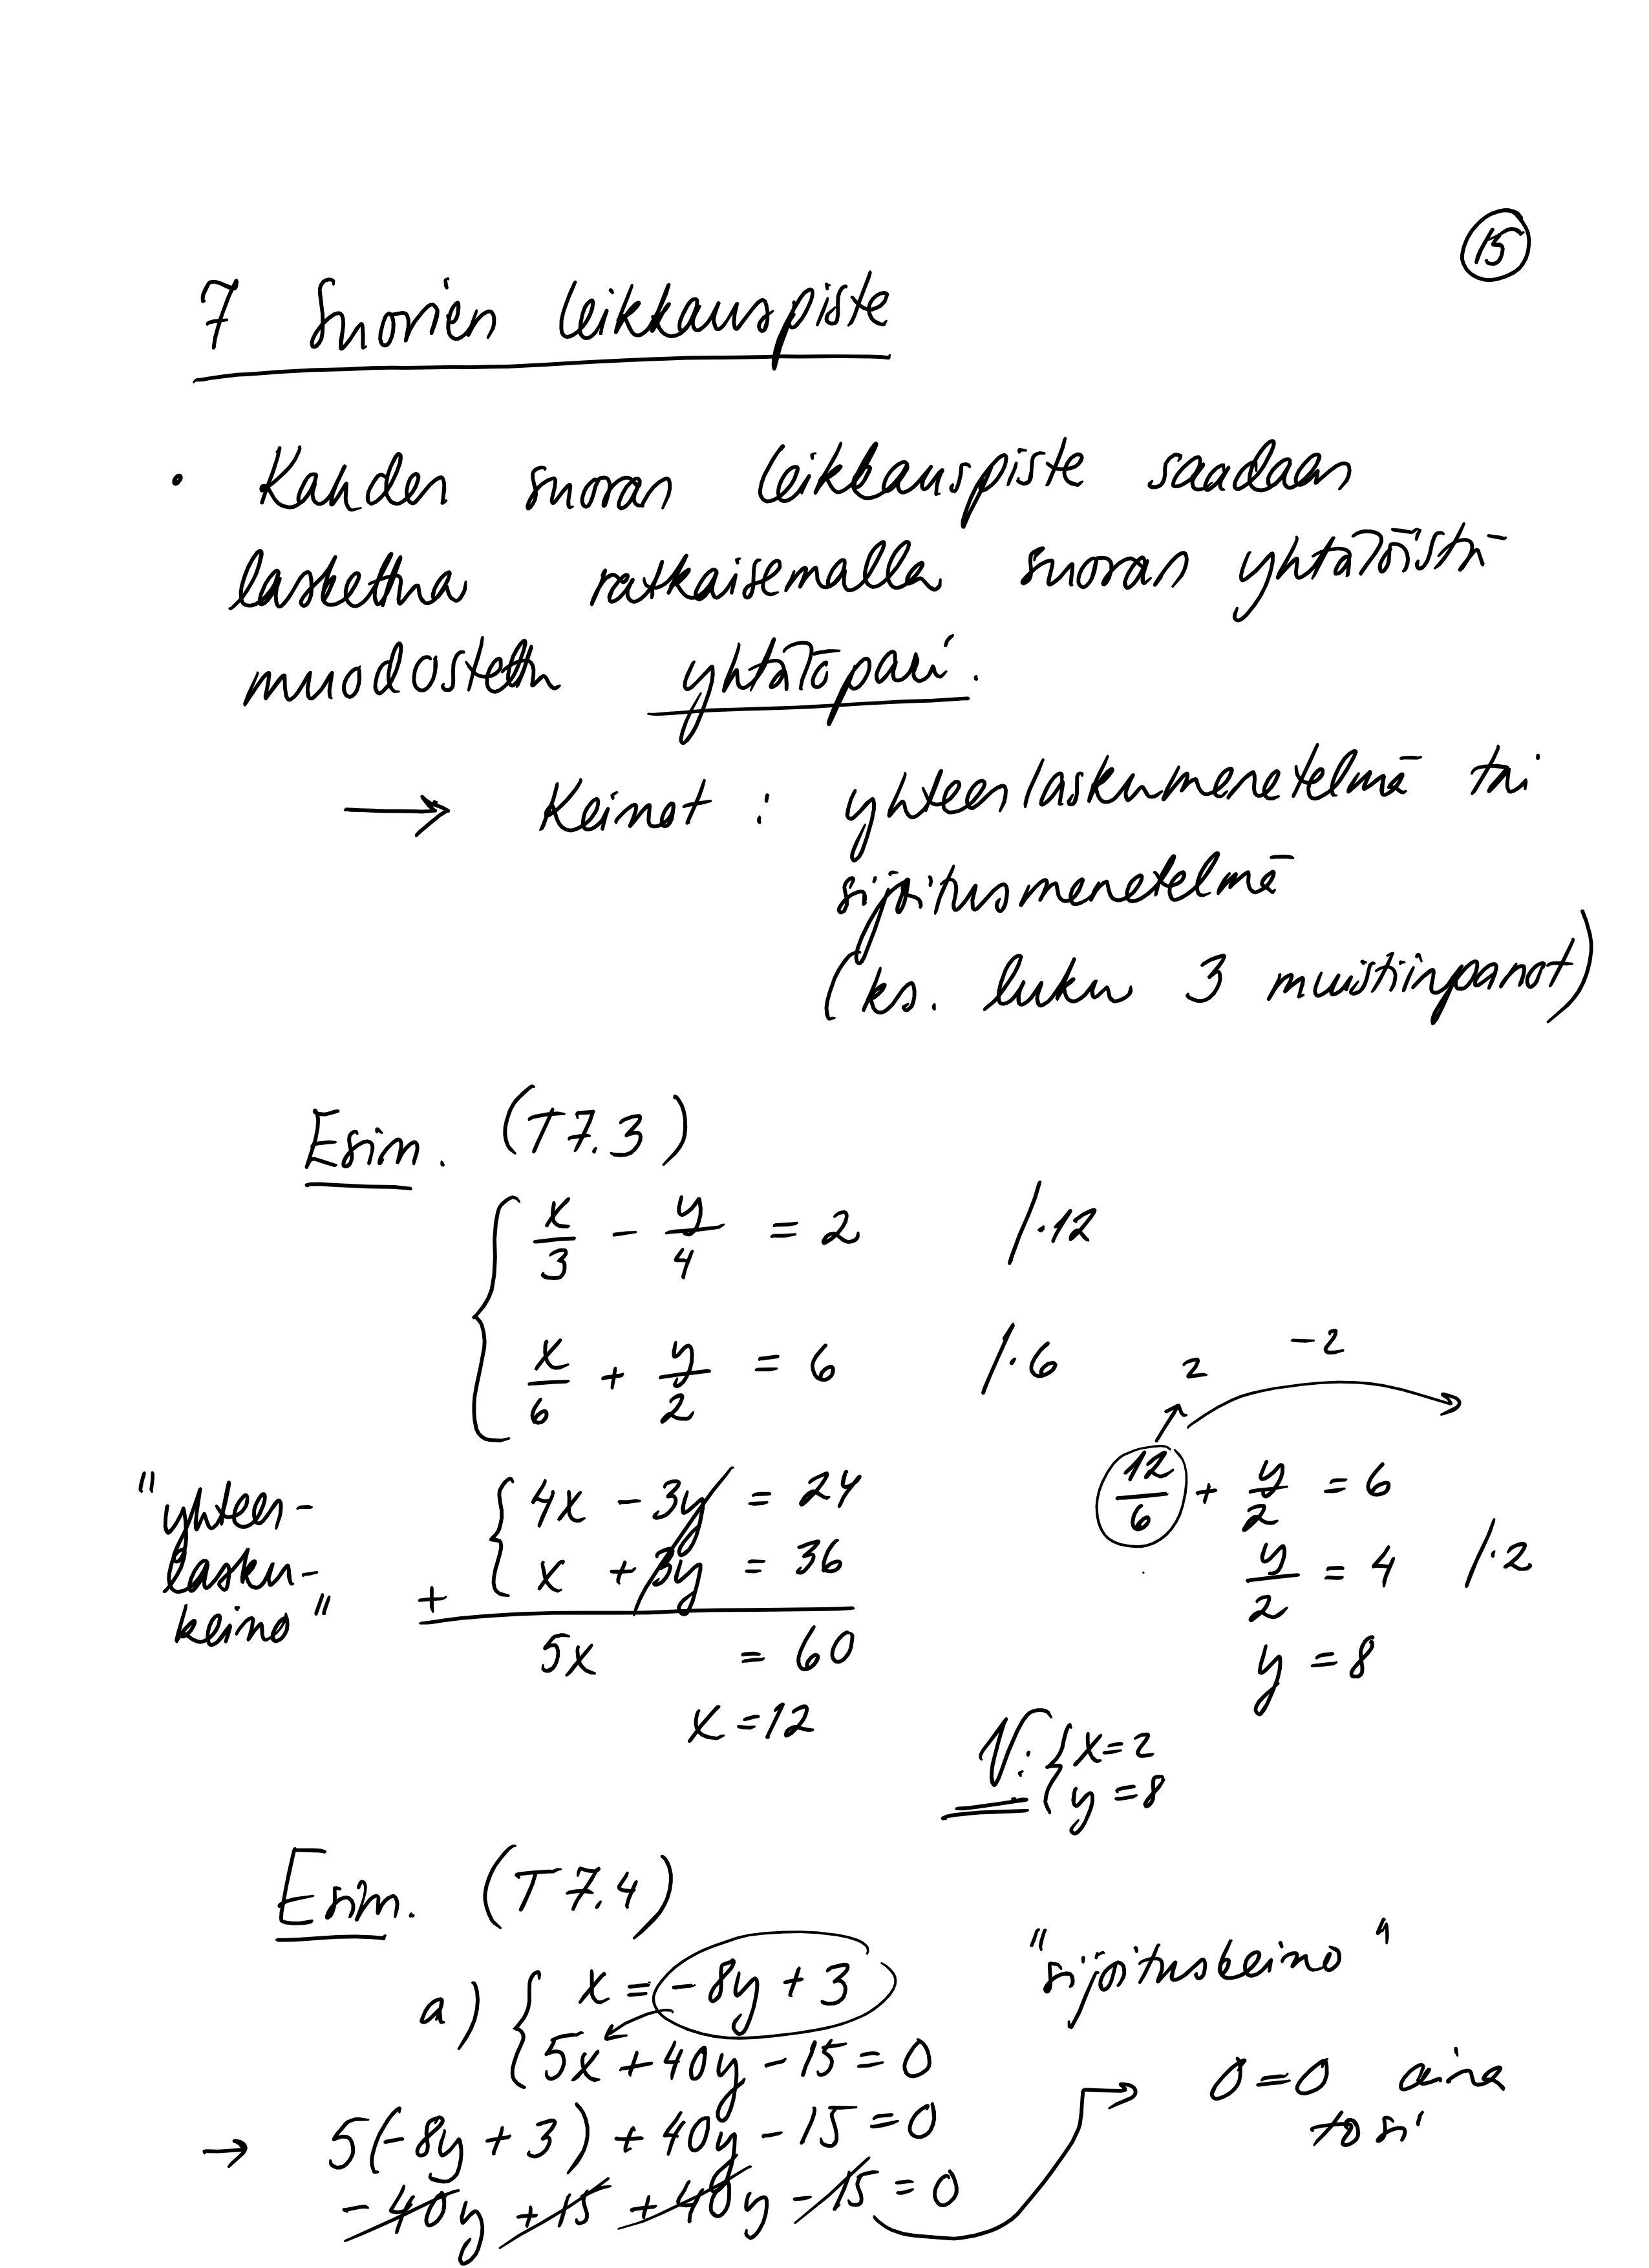 15
7 Suorien leikkauspiste
• Kahden suoran leikkauspiste saadaan
laskettua ratkaisemalla suoran yhtälöistä
muodostettu yhtälöpari.
→ Keinot : yhteenlaskumenetelmä tai
sijoitusmenetelmä
(ks. luku 3 muistiinpanot)
Esim. (T7.3)
x/3 - y/4 = 2 /·12
x/6 + y/2 = 6 /·6
2 -2
"yhteen-
lasku-
keino"
4x - 3y = 24
+ x + 3y = 36
5x = 60
x = 12
12/6 + y/2 = 6
y/2 = 4 /·2
y = 8
V: { x = 2
y = 8
Esim. (T7.4)
a) { x = -8y + 3 "sijoituskeino"
5x + 40y - 15 = 0
→ 5(-8y + 3) + 40y - 15 = 0
-40y + 15 + 40y - 15 = 0
→ 0 = 0 aina
tosi